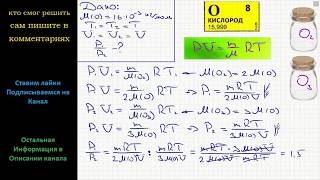 кто смог решить
сам пишите в
комментариях
Ставим лайки
Подписываемся на
Канал
Остальная
Информация в
Описании канала
Дано:
M(O) = 16·10⁻³ кг/моль
T₁ = T₂ = T
V₁ = V₂ = V
P₁/P₂ - ?
O 8
КИСЛОРОД
15,999
PV = m/M RT
O₂
O₃
P₁V₁ = m/M₁ RT₁ - M₁(O₂) = 2M(O)
P₂V₂ = m/M₂ RT₂ - M₂(O₃) = 3M(O)
P₁V = m/2M(O) RT ⇒ P₁ = mRT/2M(O)V
P₂V = m/3M(O) RT ⇒ P₂ = mRT/3M(O)V
P₁/P₂ = mRT/2M(O)V : mRT/3M(O)V = mRT · 3M(O)V/2M(O)V · mRT = 1,5